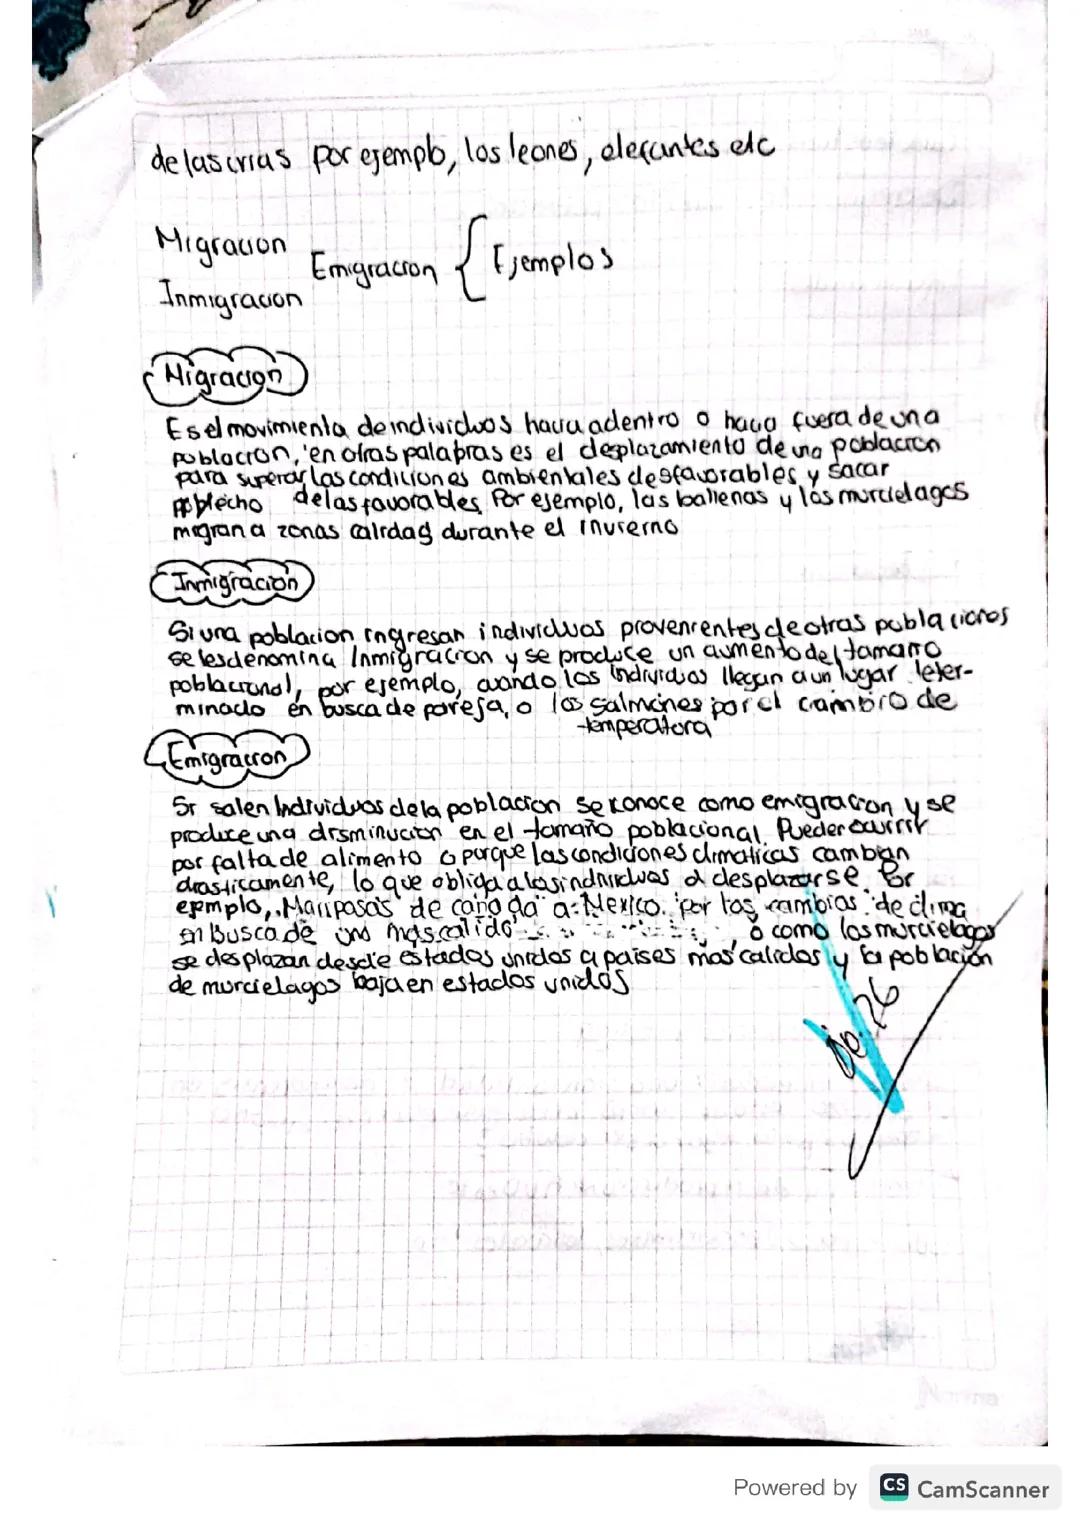 de las crias por ejemplo, los leones, elefantes etc
Migracion
Emigracion { Ejemplos
Inmigracion
Migracion
Es el movimiento de individuos hacia adentro o hacia fuera de una
poblacion, en otras palabras es el desplazamiento de una poblacion
para superar las condiciones ambientales desfavorables y sacar
de las favorables. Por ejemplo, las ballenas y los murcielagos
migran a zonas calidas durante el invierno
Inmigracion
Si una poblacion ingresan individuos provenientes de otras poblaciones
se les denomina Inmigracion y se produce un aumento del tamaño
poblacional, por ejemplo, cuando los individuos llegan a un lugar deter-
minado en busca de pareja, o los salmones por el cambio de
temperatura
Emigracion
Si salen Individuos de la poblacion se conoce como emigracion y se
produce una disminucion en el tamaño poblacional. Pueder ocurrir
por falta de alimento o porque las condiciones climaticas cambian
drasticamente, lo que obliga a los individuos a desplazarse. Por
ejemplo, Mariposas de canada a Mexico por los cambios de clima
en Busca de uno mas calido o como los murcielagos
se desplazan desde estados unidos a paises mas calidos y la poblacion
de murcielagos baja en estados unidos
Powered by CS CamScanner